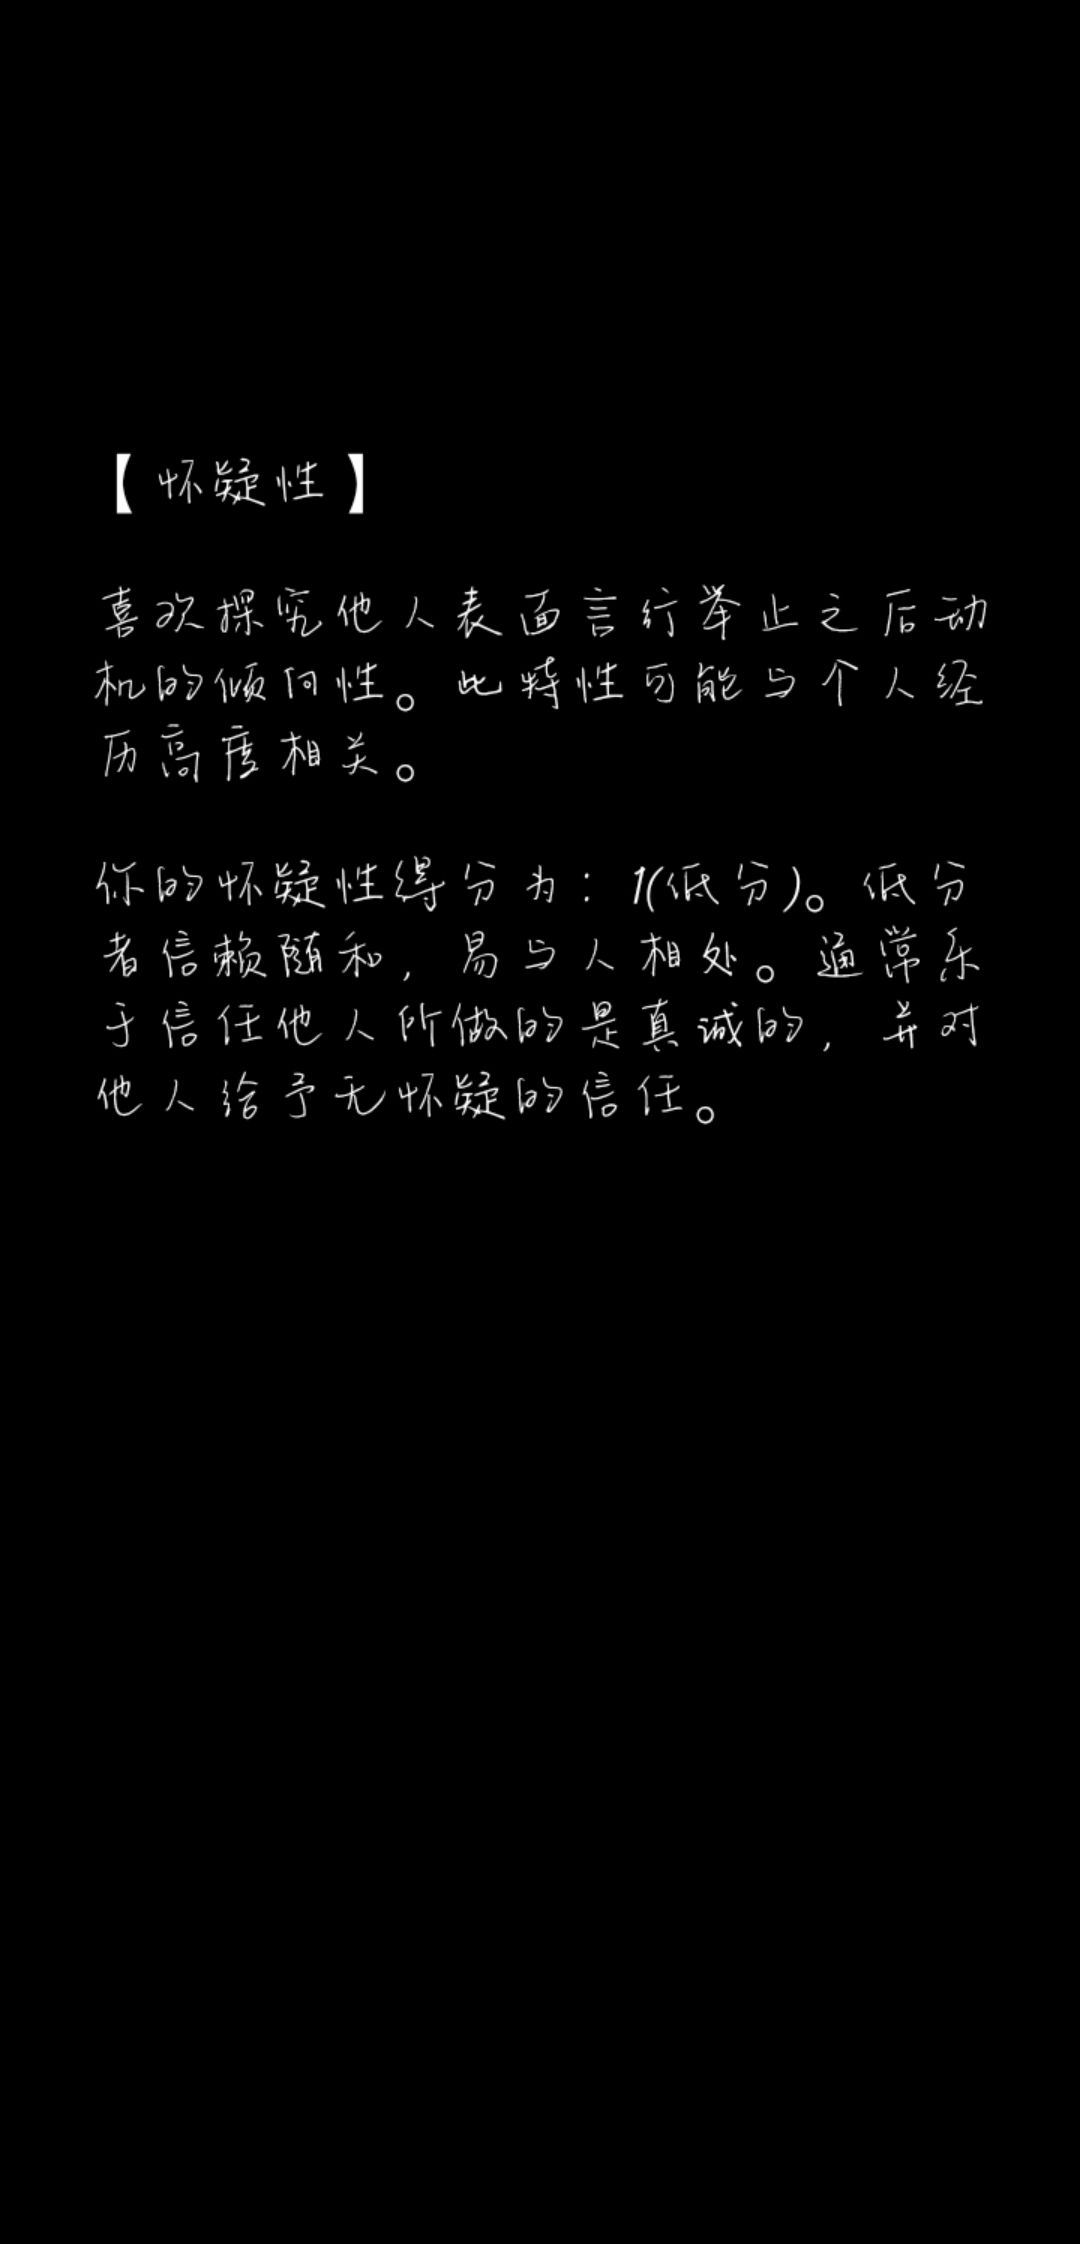 【怀疑性】
喜欢探究他人表面言行举止之后动
机的倾向性。此特性可能与个人经
历高度相关。
你的怀疑性得分为：1(低分)。低分
者信赖随和，易与人相处。通常乐
于信任他人所做的是真诚的，并对
他人给予无怀疑的信任。